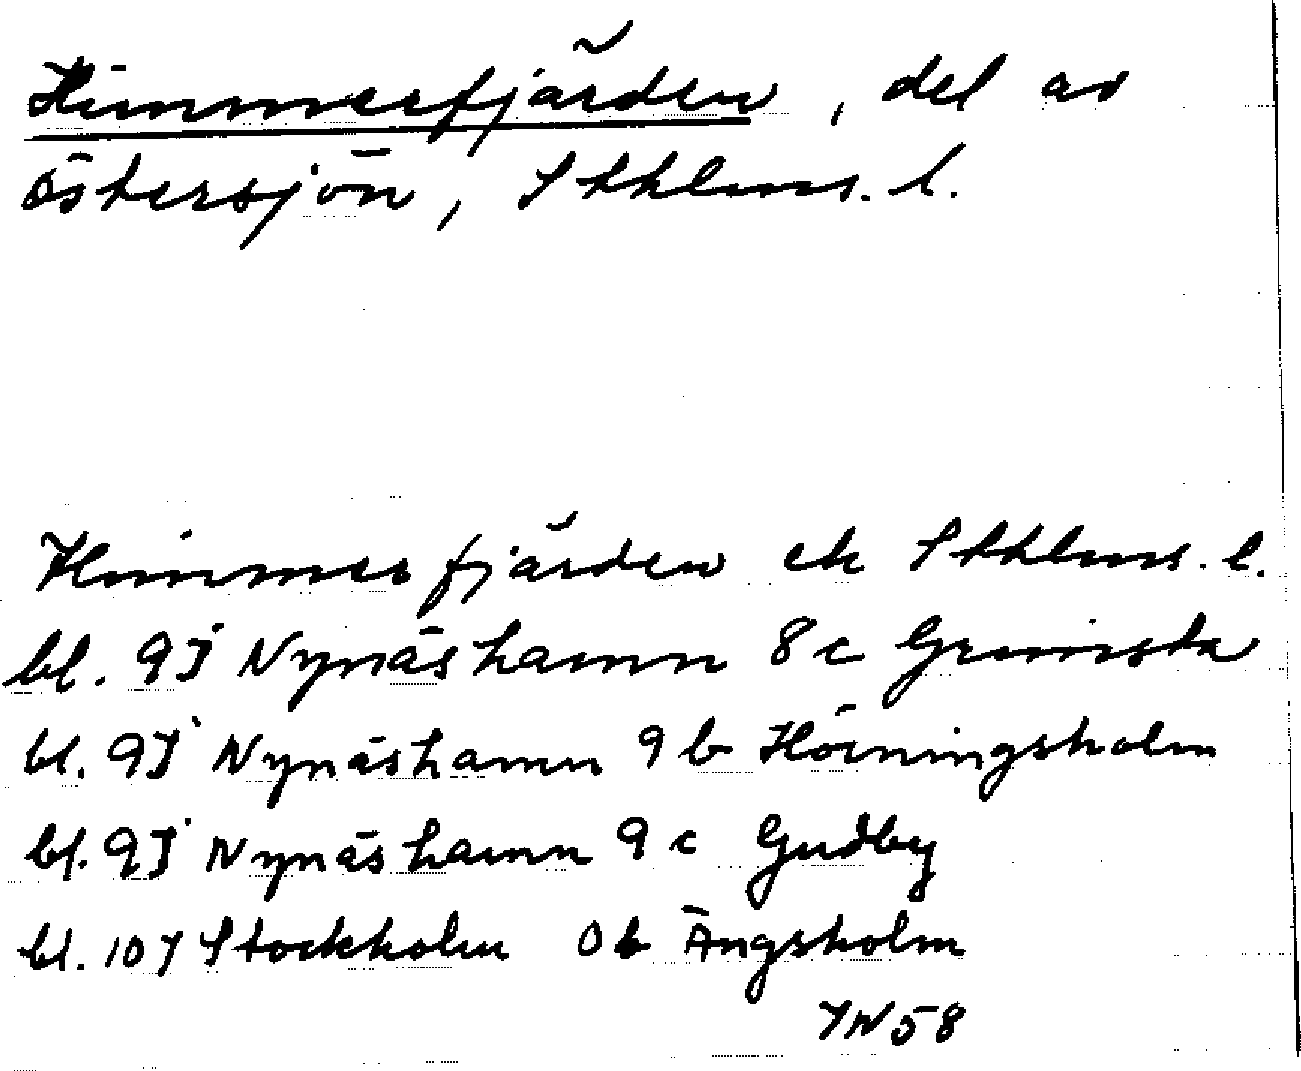 Himmerfjärden, del av
Östersjön, Sthlms. l.
Himmerfjärden ek Sthlms. l.
bl. 9I Nynäshamn 8c Grimsta
bl. 9I Nynäshamn 9b Hörningsholm
bl. 9I Nynäshamn 9c Gudby
bl. 10I Stockholm 0b Ängsholm
58